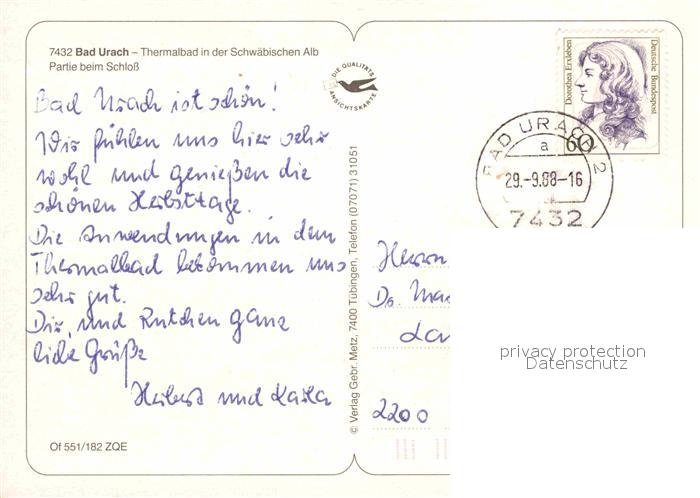 7432 Bad Urach – Thermalbad in der Schwäbischen Alb
Partie beim Schloß
Bad Urach ist schön!
Wir fühlen uns hier sehr
wohl und genießen die
schönen Herbsttage.
Die Anwendungen in dem
Thermalbad bekommen uns
sehr gut.
Dir, und Rutchen ganz
liebe Grüße
Herbert und Karla
Of 551/182 ZQE
DIE QUALITÄTS
ANSICHTSKARTE
© Verlag Gebr. Metz, 7400 Tübingen, Telefon (07071) 31051
Dorothea Erxleben
Deutsche Bundespost
60
BAD URACH 2
a
29.-9.88-16
7432
Herrn
Dr.
2200
privacy protection
Datenschutz